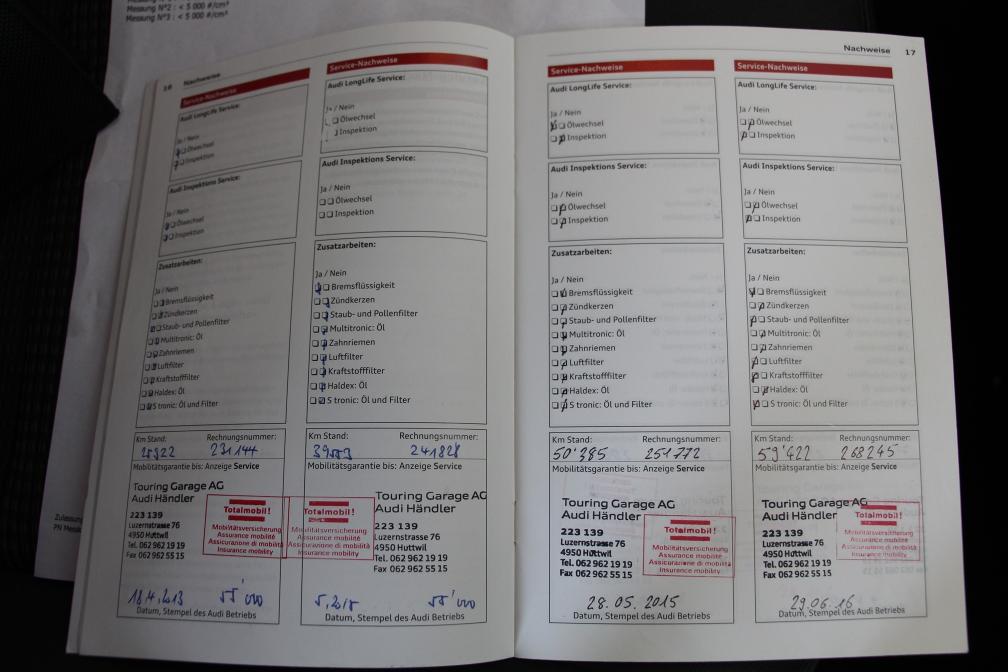 Messung N°2 : < 5 000 #/cm³
Messung N°3 : < 5 000 #/cm³
16 Nachweise
Service-Nachweise
Audi LongLife Service:
Ja / Nein
Ölwechsel
Inspektion
Audi Inspektions Service:
Ja / Nein
Ölwechsel
Inspektion
Zusatzarbeiten:
Ja / Nein
Bremsflüssigkeit
Zündkerzen
Staub- und Pollenfilter
Multitronic: Öl
Zahnriemen
Luftfilter
Kraftstofffilter
Haldex: Öl
S tronic: Öl und Filter
Km Stand: Rechnungsnummer:
231144
Mobilitätsgarantie bis: Anzeige Service
Touring Garage AG
Audi Händler
223 139
Luzernstrasse 76
4950 Huttwil
Tel. 062 962 19 19
Fax 062 962 55 15
Totalmobil!
Mobilitätsversicherung
Assurance mobilité
Assicurazione di mobilità
Insurance mobility
Datum, Stempel des Audi Betriebs
Service-Nachweise
Audi LongLife Service:
/ Nein
Ölwechsel
Inspektion
Audi Inspektions Service:
Ja / Nein
Ölwechsel
Inspektion
Zusatzarbeiten:
Ja / Nein
Bremsflüssigkeit
Zündkerzen
Staub- und Pollenfilter
Multitronic: Öl
Zahnriemen
Luftfilter
Kraftstofffilter
Haldex: Öl
S tronic: Öl und Filter
Km Stand: Rechnungsnummer:
241828
Mobilitätsgarantie bis: Anzeige Service
Touring Garage AG
Audi Händler
223 139
Luzernstrasse 76
4950 Huttwil
Tel. 062 962 19 19
Fax 062 962 55 15
Totalmobil!
Mobilitätsversicherung
Assurance mobilité
Assicurazione di mobilità
Insurance mobility
Datum, Stempel des Audi Betriebs
Nachweise 17
Service-Nachweise
Audi LongLife Service:
Ja / Nein
Ölwechsel
Inspektion
Audi Inspektions Service:
Ja / Nein
Ölwechsel
Inspektion
Zusatzarbeiten:
Ja / Nein
Bremsflüssigkeit
Zündkerzen
Staub- und Pollenfilter
Multitronic: Öl
Zahnriemen
Luftfilter
Kraftstofffilter
Haldex: Öl
S tronic: Öl und Filter
Km Stand: Rechnungsnummer:
50'385 251772
Mobilitätsgarantie bis: Anzeige Service
Touring Garage AG
Audi Händler
223 139
Luzernstrasse 76
4950 Huttwil
Tel. 062 962 19 19
Fax 062 962 55 15
Totalmobil!
Mobilitätsversicherung
Assurance mobilité
Assicurazione di mobilità
Insurance mobility
28.05.2015
Datum, Stempel des Audi Betriebs
Service-Nachweise
Audi LongLife Service:
Ja / Nein
Ölwechsel
Inspektion
Audi Inspektions Service:
Ja / Nein
Ölwechsel
Inspektion
Zusatzarbeiten:
Ja / Nein
Bremsflüssigkeit
Zündkerzen
Staub- und Pollenfilter
Multitronic: Öl
Zahnriemen
Luftfilter
Kraftstofffilter
Haldex: Öl
S tronic: Öl und Filter
Km Stand: Rechnungsnummer:
59'422 268245
Mobilitätsgarantie bis: Anzeige Service
Touring Garage AG
Audi Händler
223 139
Luzernstrasse 76
4950 Huttwil
Tel. 062 962 19 19
Fax 062 962 55 15
Totalmobil!
Mobilitätsversicherung
Assurance mobilité
Assicurazione di mobilità
Insurance mobility
29.06.16
Datum, Stempel des Audi Betriebs